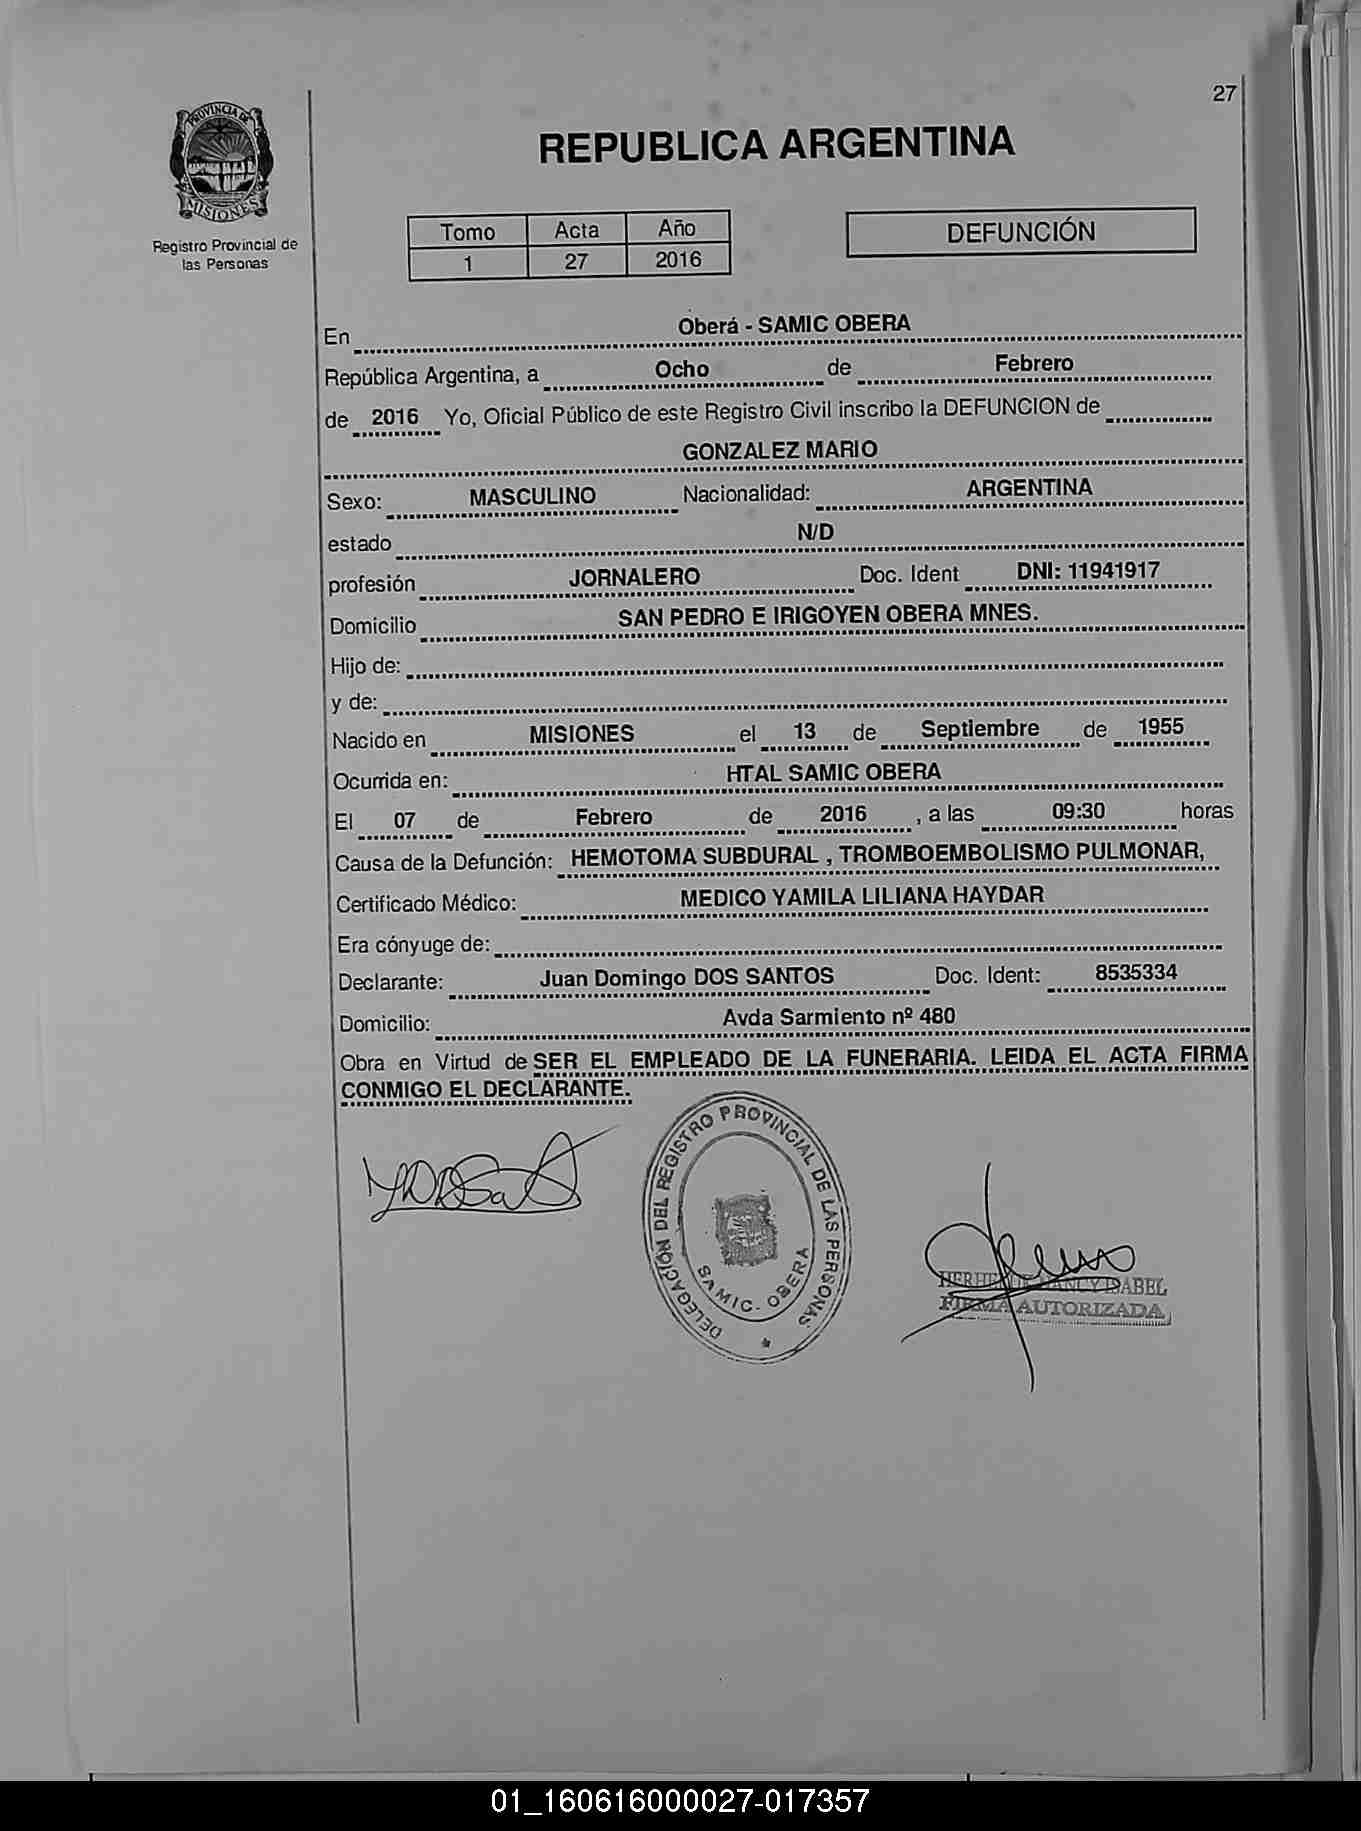 27
PROVINCIA DE
MISIONES
Registro Provincial de
las Personas
REPUBLICA ARGENTINA
Tomo Acta Año
1 27 2016
DEFUNCIÓN
En Oberá - SAMIC OBERA
República Argentina, a Ocho de Febrero
de 2016 Yo, Oficial Público de este Registro Civil inscribo la DEFUNCION de
GONZALEZ MARIO
Sexo: MASCULINO Nacionalidad: ARGENTINA
estado N/D
profesión JORNALERO Doc. Ident DNI: 11941917
Domicilio SAN PEDRO E IRIGOYEN OBERA MNES.
Hijo de:
y de:
Nacido en MISIONES el 13 de Septiembre de 1955
Ocurrida en: HTAL SAMIC OBERA
El 07 de Febrero de 2016 , a las 09:30 horas
Causa de la Defunción: HEMOTOMA SUBDURAL , TROMBOEMBOLISMO PULMONAR,
Certificado Médico: MEDICO YAMILA LILIANA HAYDAR
Era cónyuge de:
Declarante: Juan Domingo DOS SANTOS Doc. Ident: 8535334
Domicilio: Avda Sarmiento nº 480
Obra en Virtud de SER EL EMPLEADO DE LA FUNERARIA. LEIDA EL ACTA FIRMA
CONMIGO EL DECLARANTE.
DELEGACIÓN DEL REGISTRO PROVINCIAL DE LAS PERSONAS
SAMIC. OBERA
NANCY ISABEL
FIRMA AUTORIZADA
01_160616000027-017357